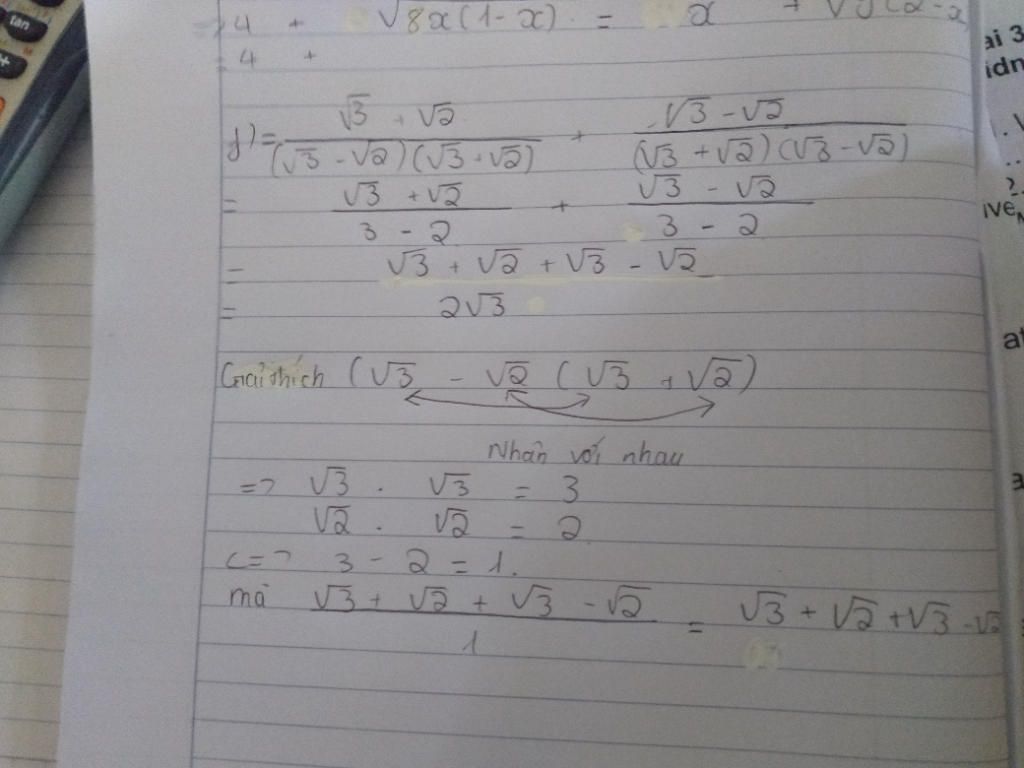 => 4 + √8x(1-x) = x +
= 4 +
f) = (√3 + √2)/((√3 - √2)(√3 + √2)) + (√3 - √2)/((√3 + √2)(√3 - √2))
= (√3 + √2)/(3 - 2) + (√3 - √2)/(3 - 2)
= √3 + √2 + √3 - √2
= 2√3
Giải thích (√3 - √2 (√3 + √2)
Nhân với nhau
=> √3 . √3 = 3
√2 . √2 = 2
<=> 3 - 2 = 1.
mà (√3 + √2 + √3 - √2)/1 = √3 + √2 + √3 - √2
tan
ai 3
idn
ive
at
a